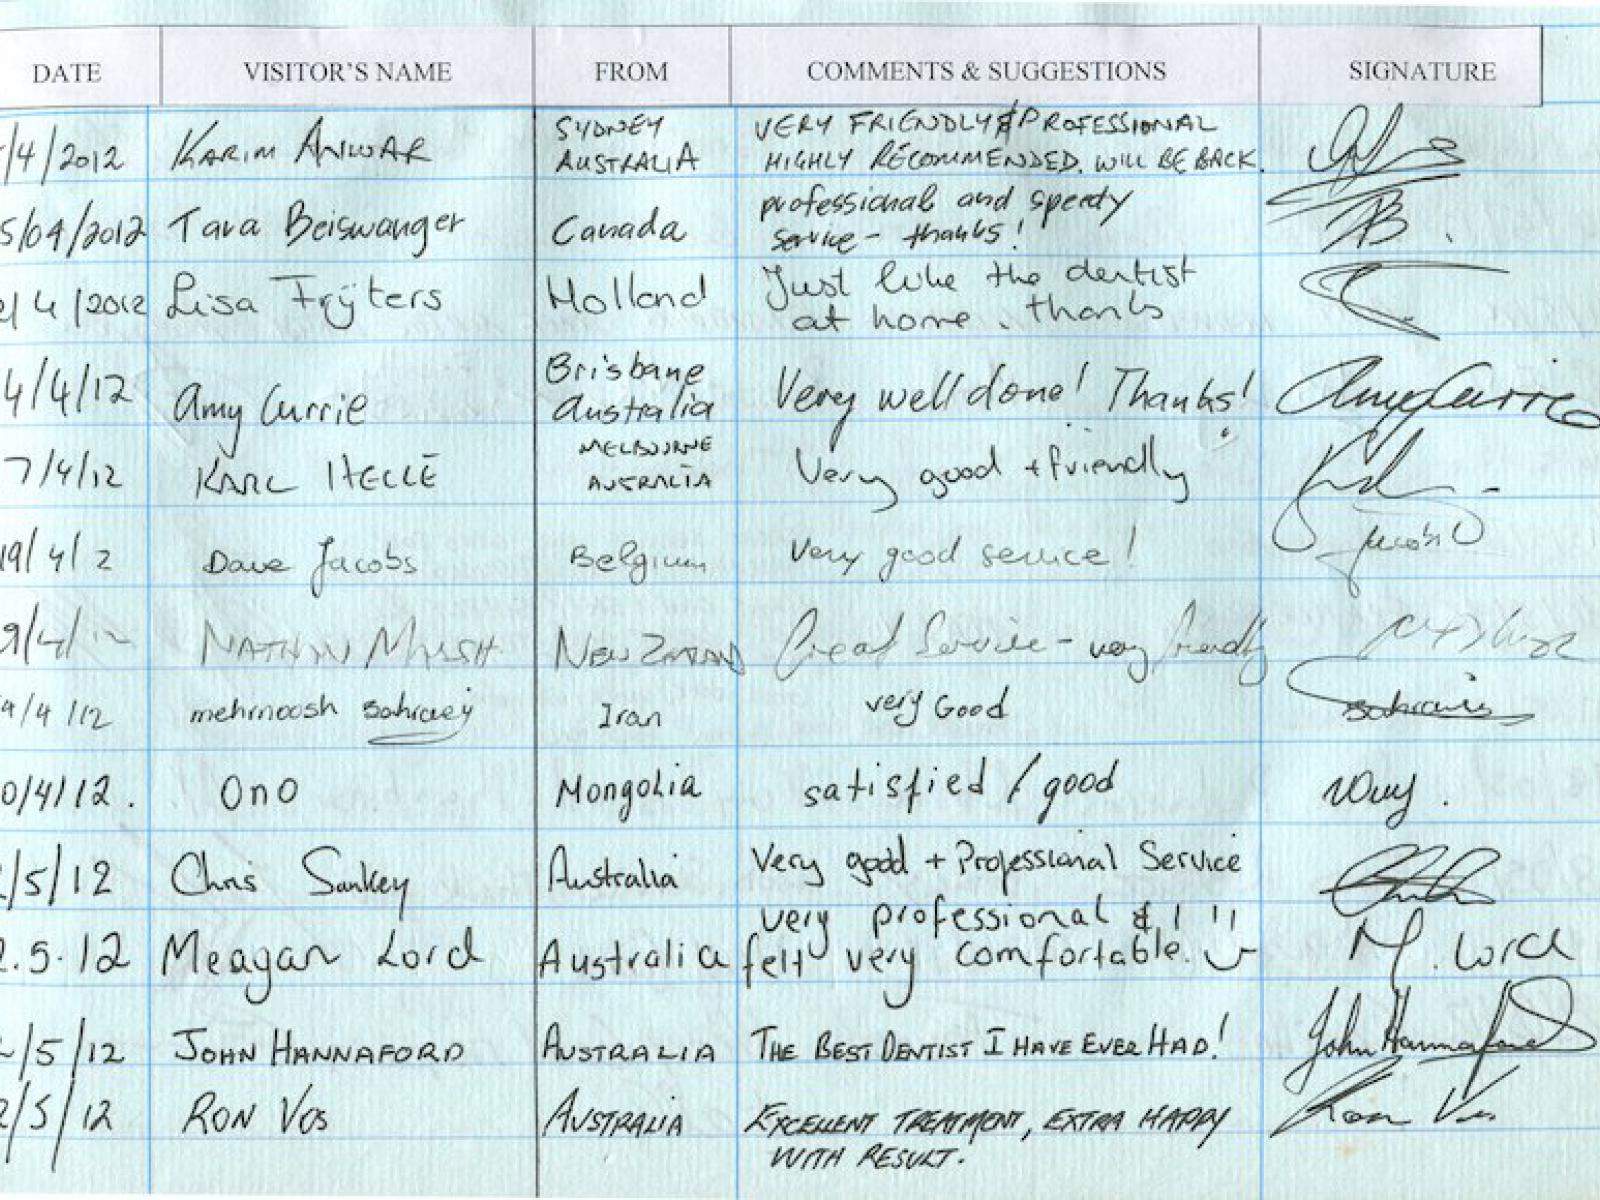 DATE VISITOR'S NAME FROM COMMENTS & SUGGESTIONS SIGNATURE
SYDNEY VERY FRIENDLY & PROFESSIONAL
/4/2012 KARIM ANWAR AUSTRALIA HIGHLY RECOMMENDED. WILL BE BACK.
professional and speedy
5/04/2012 Tara Beiswanger Canada service - thanks! TB.
Just like the dentist
/4/2012 Lisa Frijters Holland at home. thanks
Brisbane
4/4/12 Amy Currie Australia Very well done! Thanks! Amy Currie
MELBOURNE
7/4/12 KARL HELLE AUSTRALIA Very good + friendly
19/4/2 Dave Jacobs Belgium Very good service! Jacobs
9/4/12 NATHAN NEW ZEALAND Great Service - very friendly
9/4/12 mehrnoosh sahraiey Iran very Good
0/4/12. Ono Mongolia satisfied / good
/5/12 Chris Sankey Australia Very good + Professional Service
very professional & !!!
2.5.12 Meagan Lord Australia felt very comfortable. M. Lord
/5/12 JOHN HANNAFORD AUSTRALIA THE BEST DENTIST I HAVE EVER HAD! John Hannaford
2/5/12 RON VOS AUSTRALIA EXCELLENT TREATMENT, EXTRA HAPPY Ron Vos
WITH RESULT.